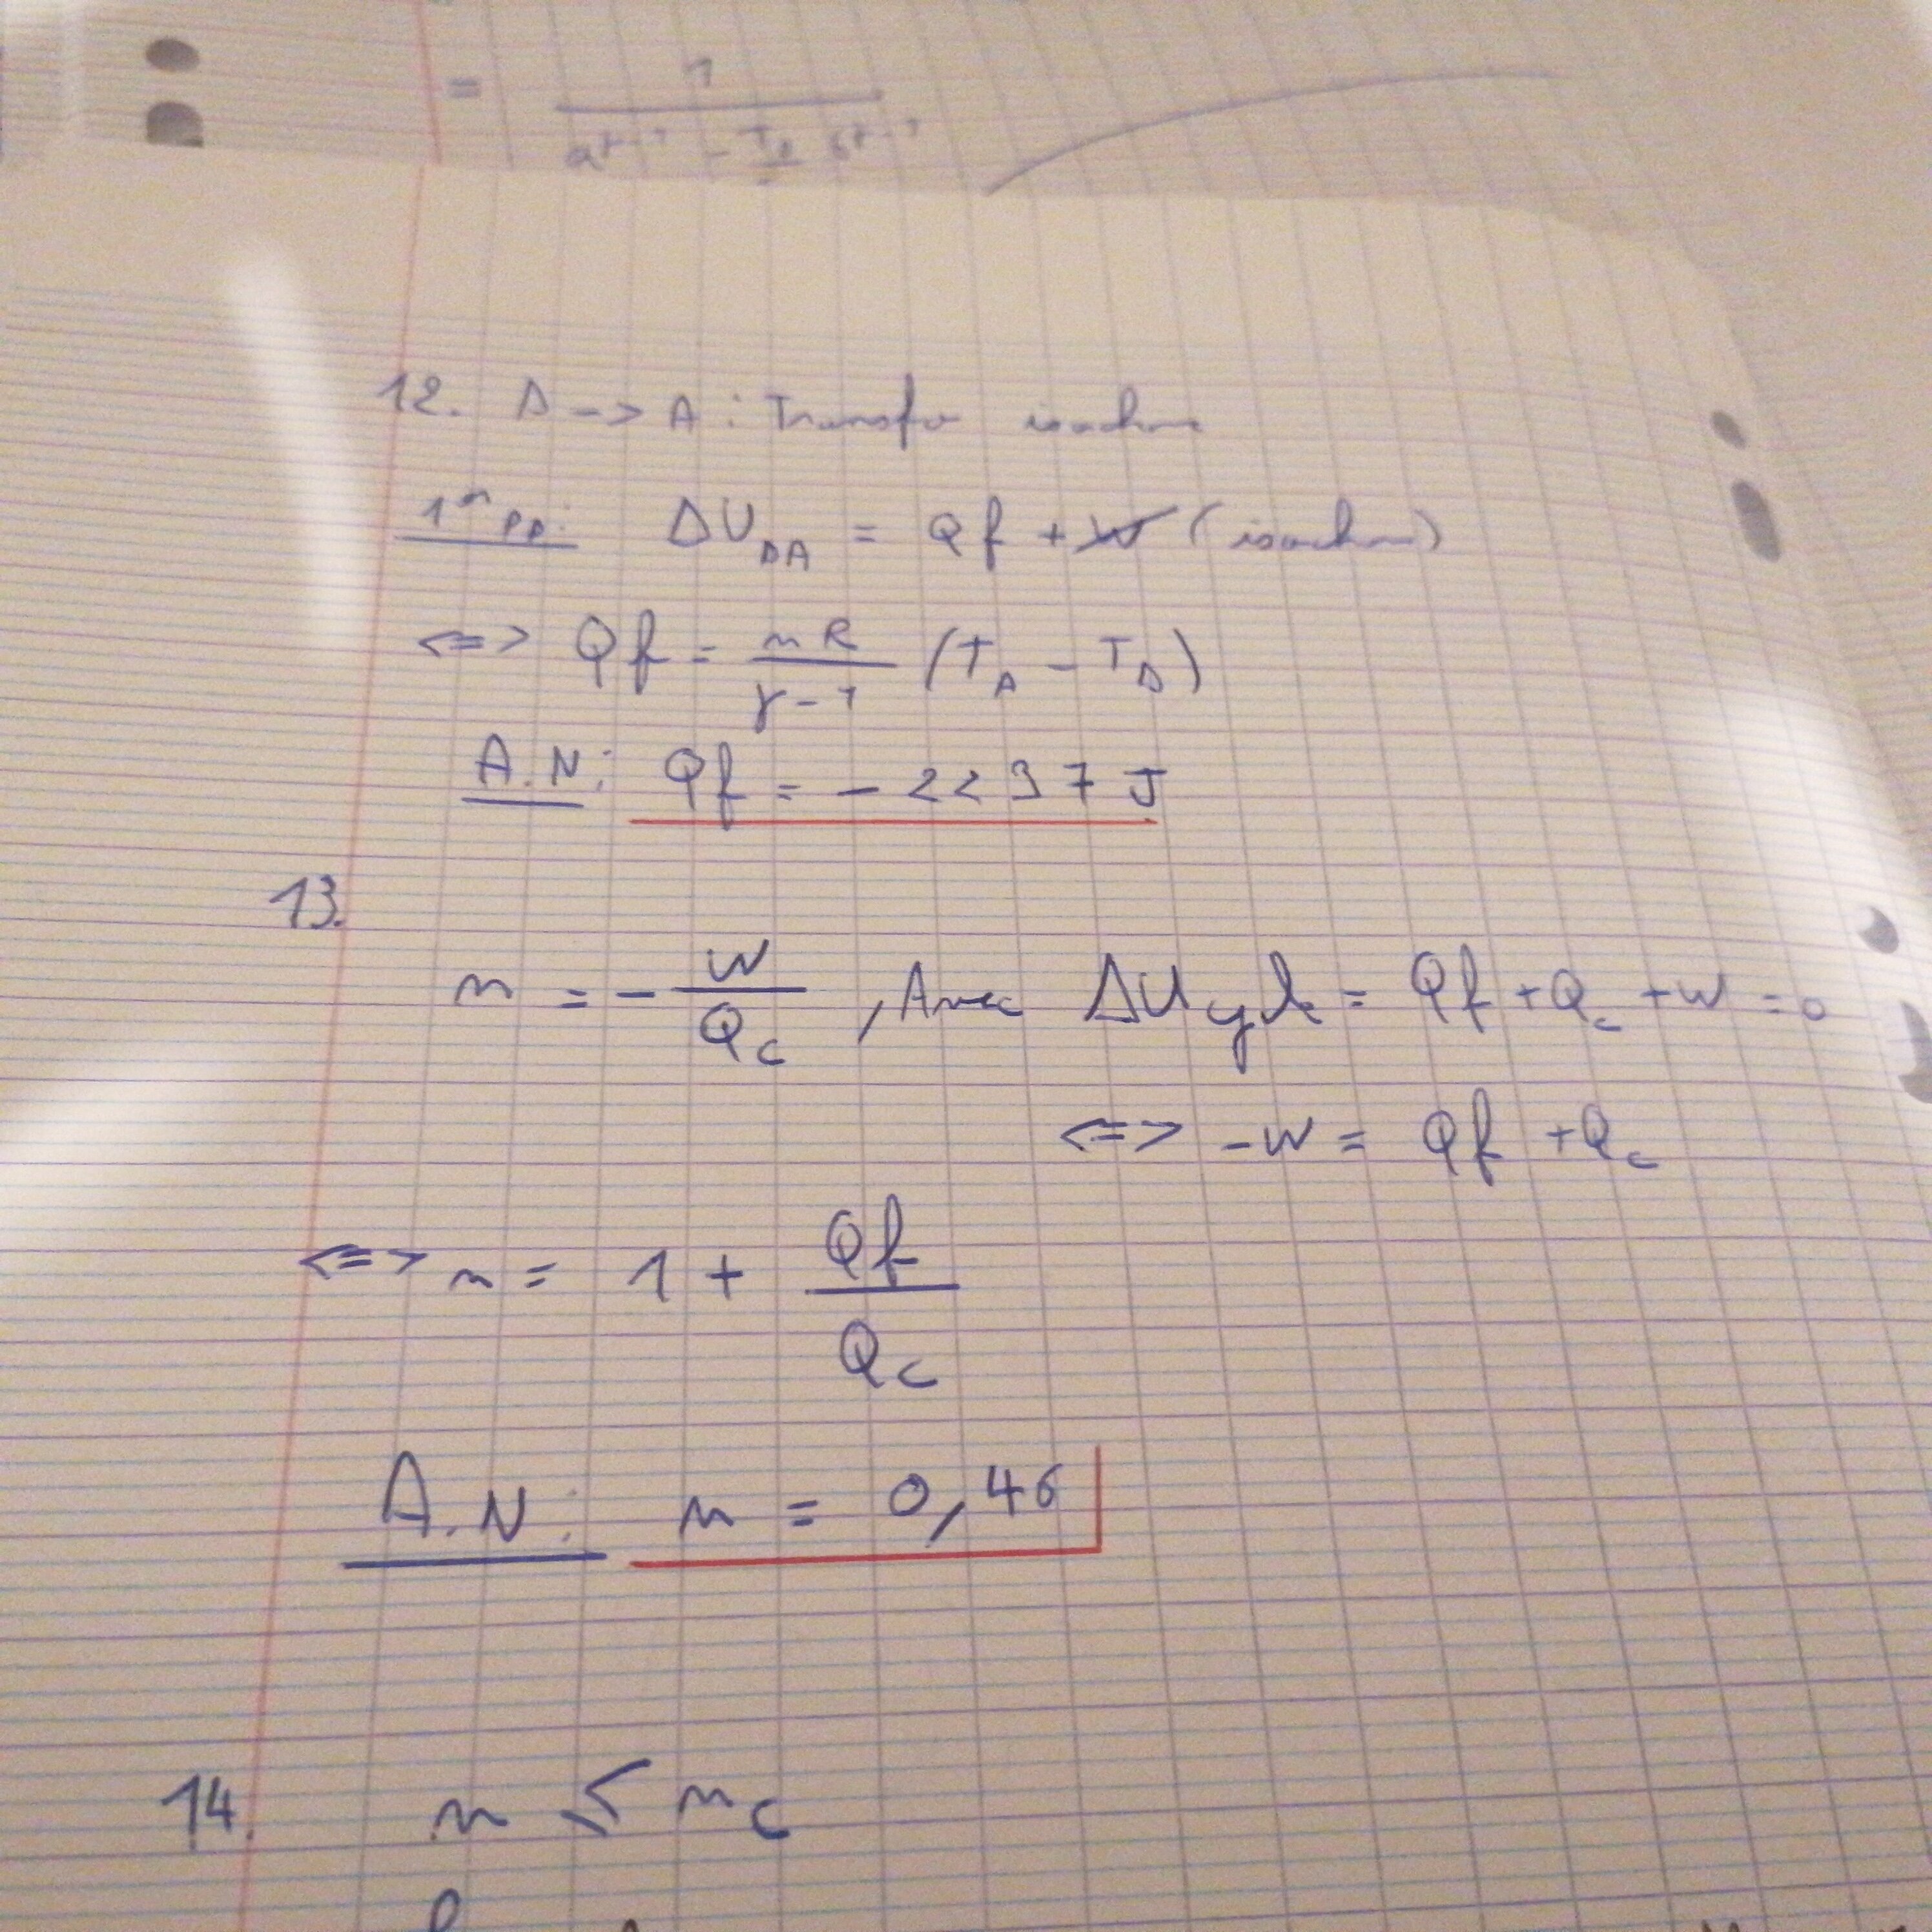 = 1 / a^γ-1 - T_B b^γ-1
12. D -> A : Transfo isochore
1er pp: ΔU_DA = Qf + W (isochore)
<=> Qf = nR / γ-1 (T_A - T_D)
A.N: Qf = - 2237 J
13.
η = - W / Q_c , Avec ΔU cycle = Qf + Q_c + W = 0
<=> -W = Qf + Q_c
<=> η = 1 + Qf / Q_c
A.N: η = 0,46
14. η ≤ η_c